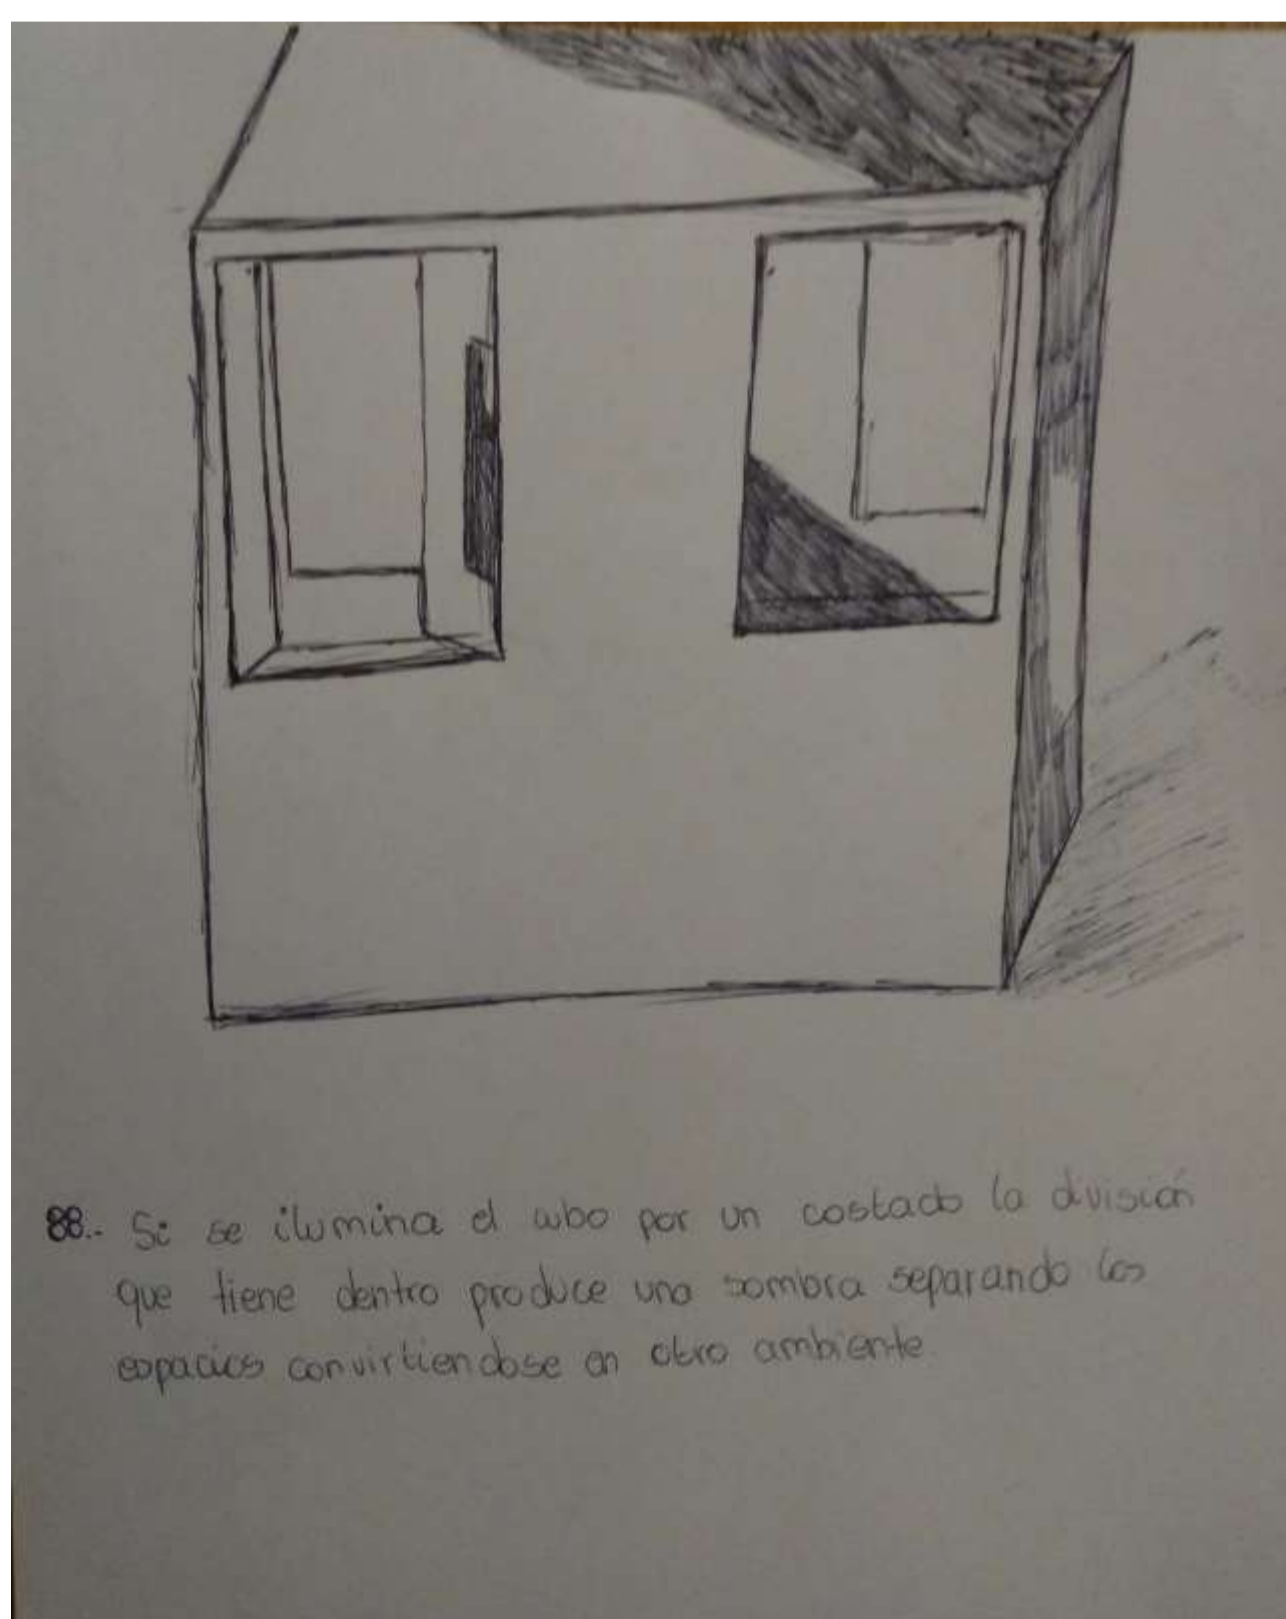 88.- Si se ilumina el cubo por un costado la división
que tiene dentro produce una sombra separando los
espacios convirtiendose en otro ambiente.